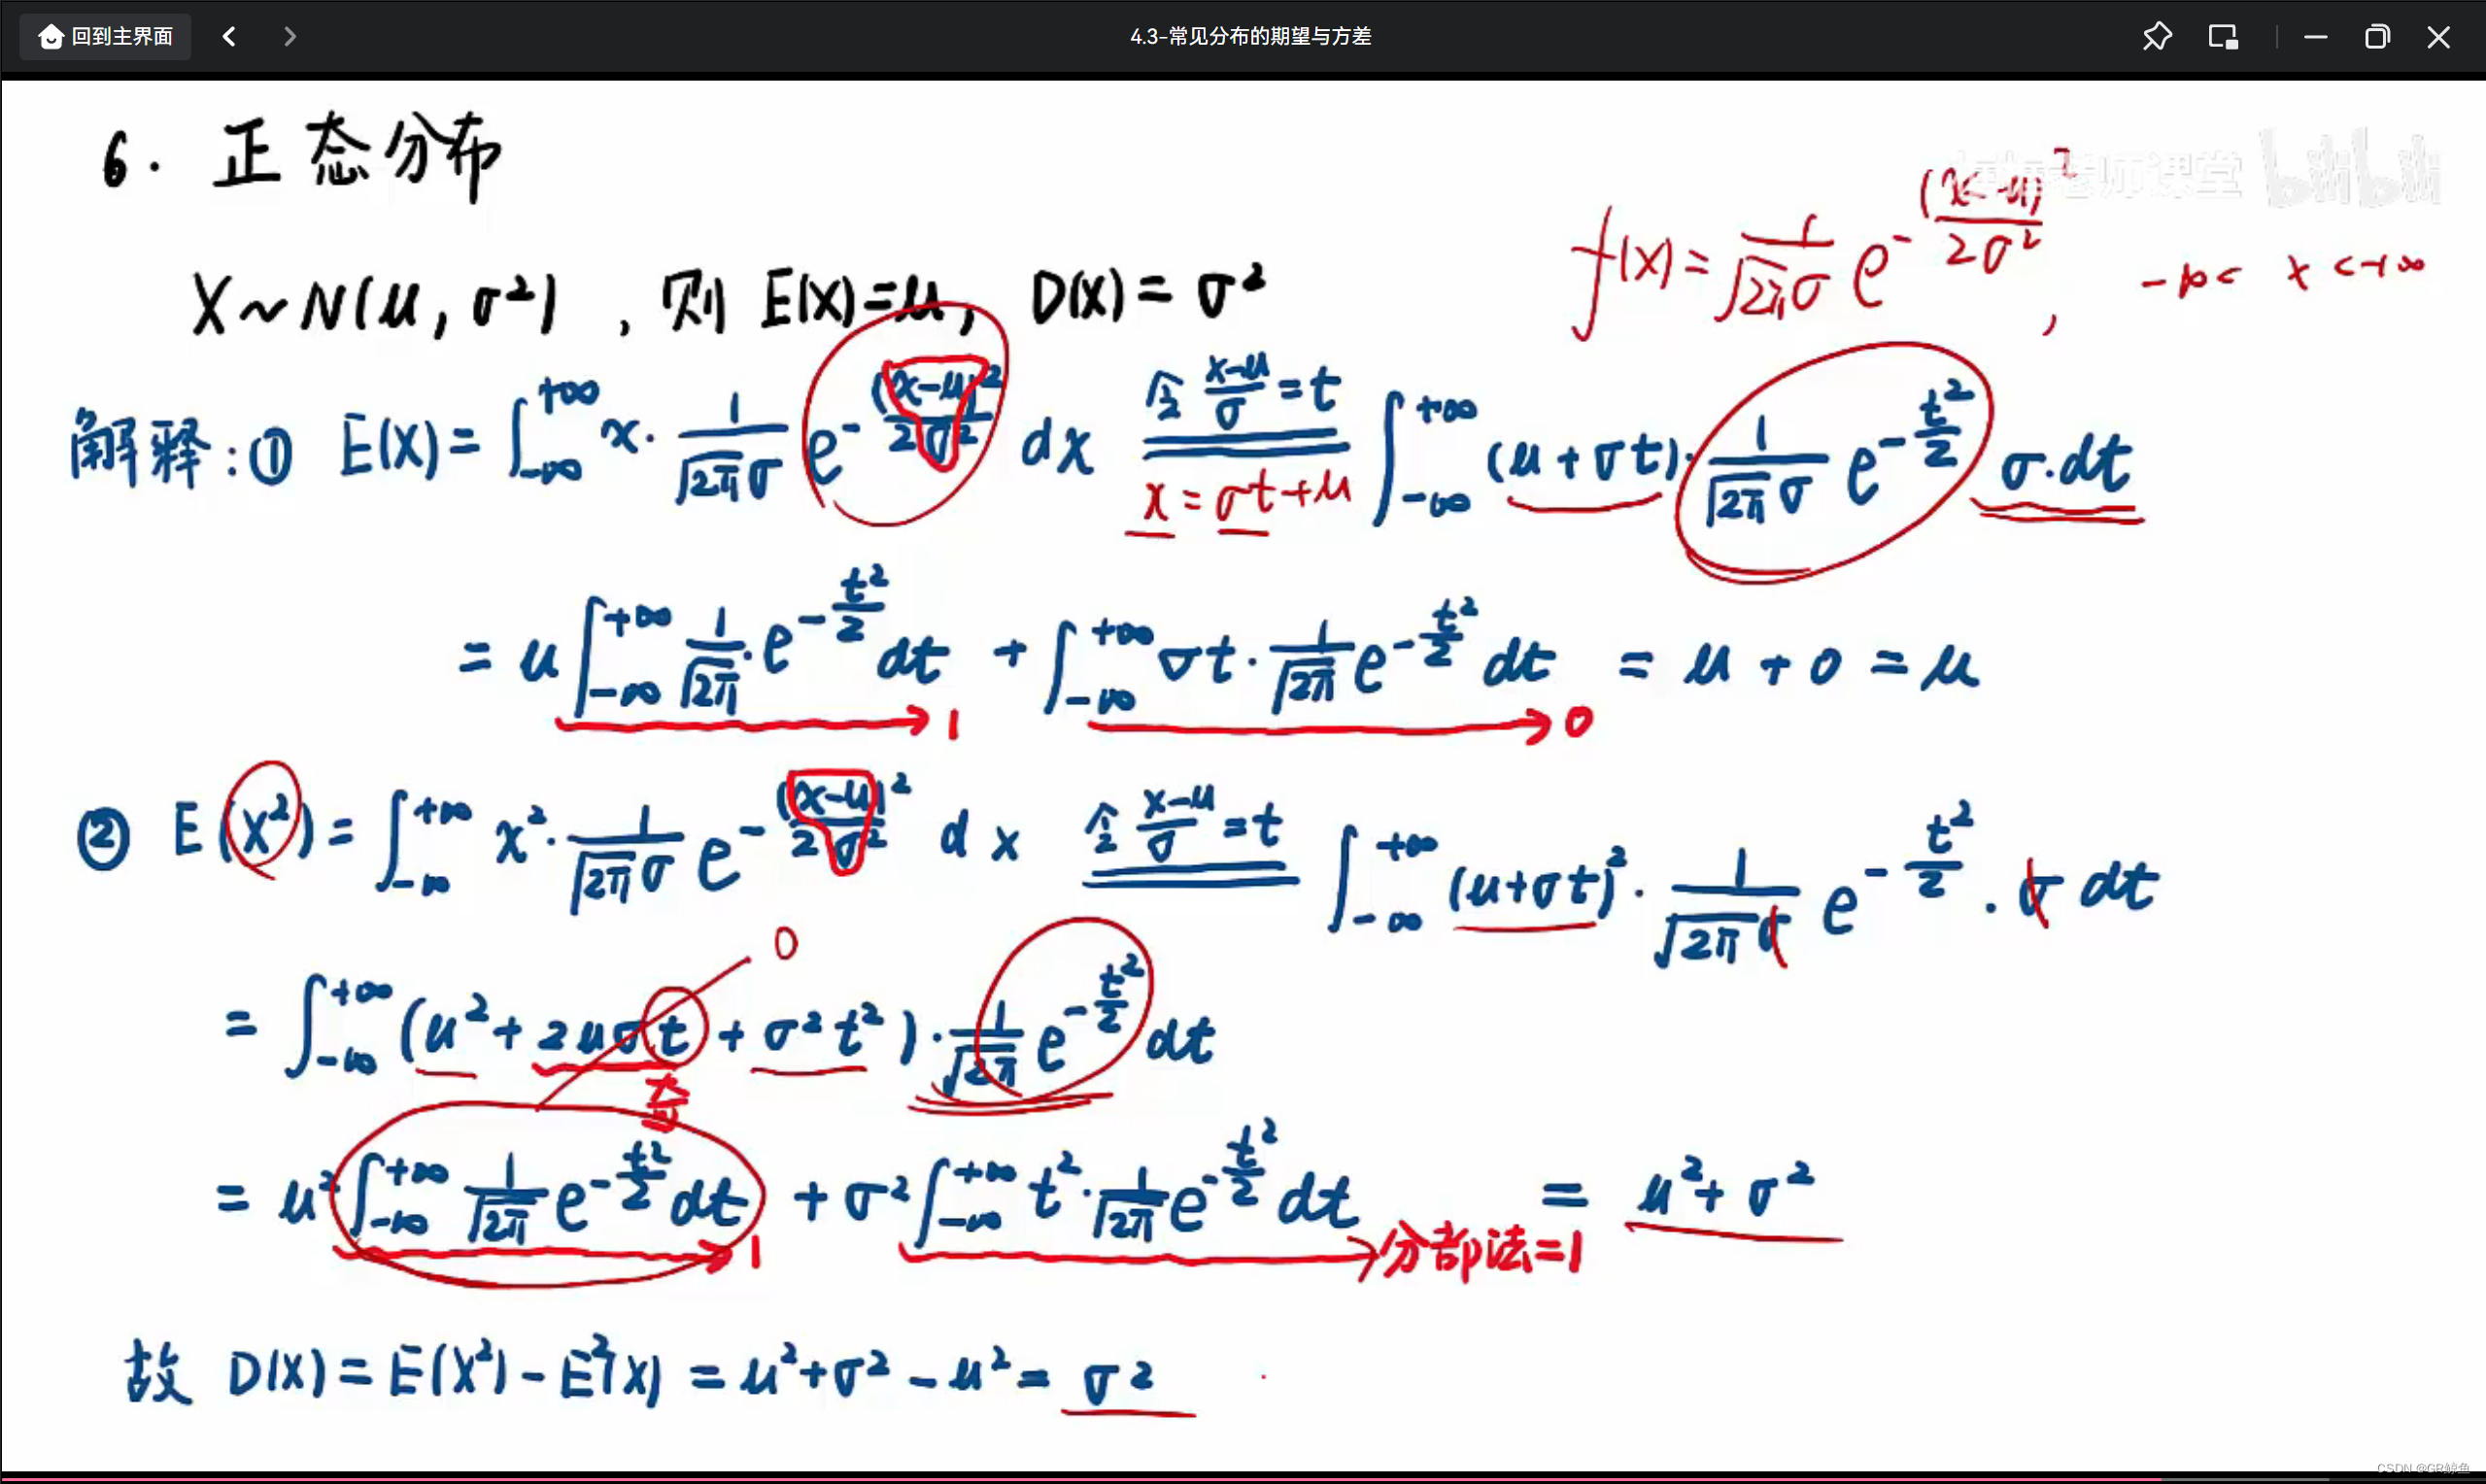 回到主界面
4.3-常见分布的期望与方差
6. 正态分布
bilibili
f(x) = 1/(√2π σ) e^{-(x-μ)²/(2σ²)}, -∞< x <+∞
X~N(μ, σ²), 则 E(X)=μ, D(X)= σ²
解释:① E(X)= ∫_{-∞}^{+∞} x· 1/(√2π σ) e^{-(x-μ)²/(2σ²)} dx 令 (x-μ)/σ =t ∫_{-∞}^{+∞} (μ+σt)· 1/(√2π σ) e^{-t²/2} σ·dt
x = σt+μ
= μ ∫_{-∞}^{+∞} 1/√2π · e^{-t²/2} dt + ∫_{-∞}^{+∞} σt· 1/√2π e^{-t²/2} dt = μ + 0 = μ
→ 1 → 0
② E(X²)= ∫_{-∞}^{+∞} x²· 1/(√2π σ) e^{-(x-μ)²/(2σ²)} dx 令 (x-μ)/σ =t ∫_{-∞}^{+∞} (μ+σt)²· 1/(√2π σ) e^{-t²/2} · σ dt
0
= ∫_{-∞}^{+∞} (μ²+ 2μσt + σ²t²)· 1/√2π e^{-t²/2} dt
奇
= μ² ∫_{-∞}^{+∞} 1/√2π e^{-t²/2} dt + σ² ∫_{-∞}^{+∞} t²· 1/√2π e^{-t²/2} dt = μ²+ σ²
→ 1 → 分部法=1
故 D(X)= E(X²)- E²(X) = μ²+σ² - μ² = σ²
CSDN @GR鲸鱼